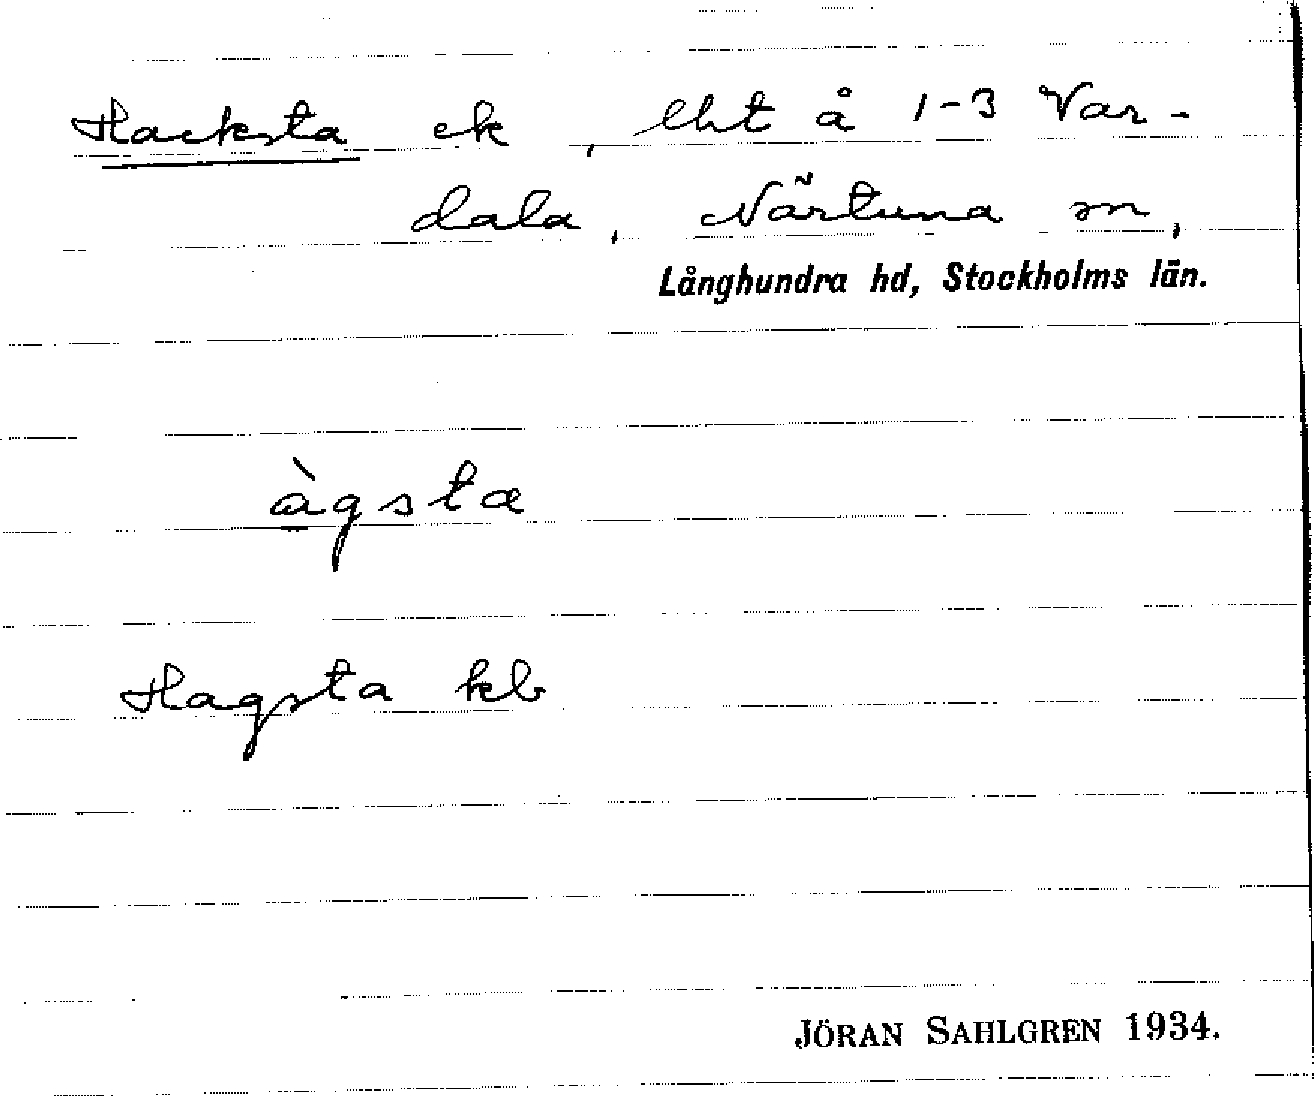 Hacksta ek, lht å 1-3 Var-
dala, Närtuna sn,
Långhundra hd, Stockholms län.
àgsta
Hagsta kb
JÖRAN SAHLGREN 1934.